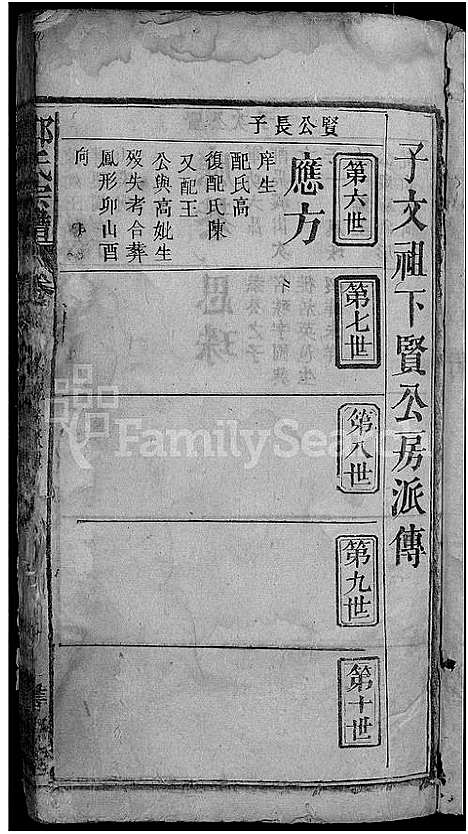 子文祖下賢公房派傳
第六世
賢公長子
應方
庠生
配氏高
復配氏陳
又配王
公與高妣生
殁失考合葬
鳳形卯山酉
向
第七世
第八世
第九世
第十世
氏宗譜
FamilySearch